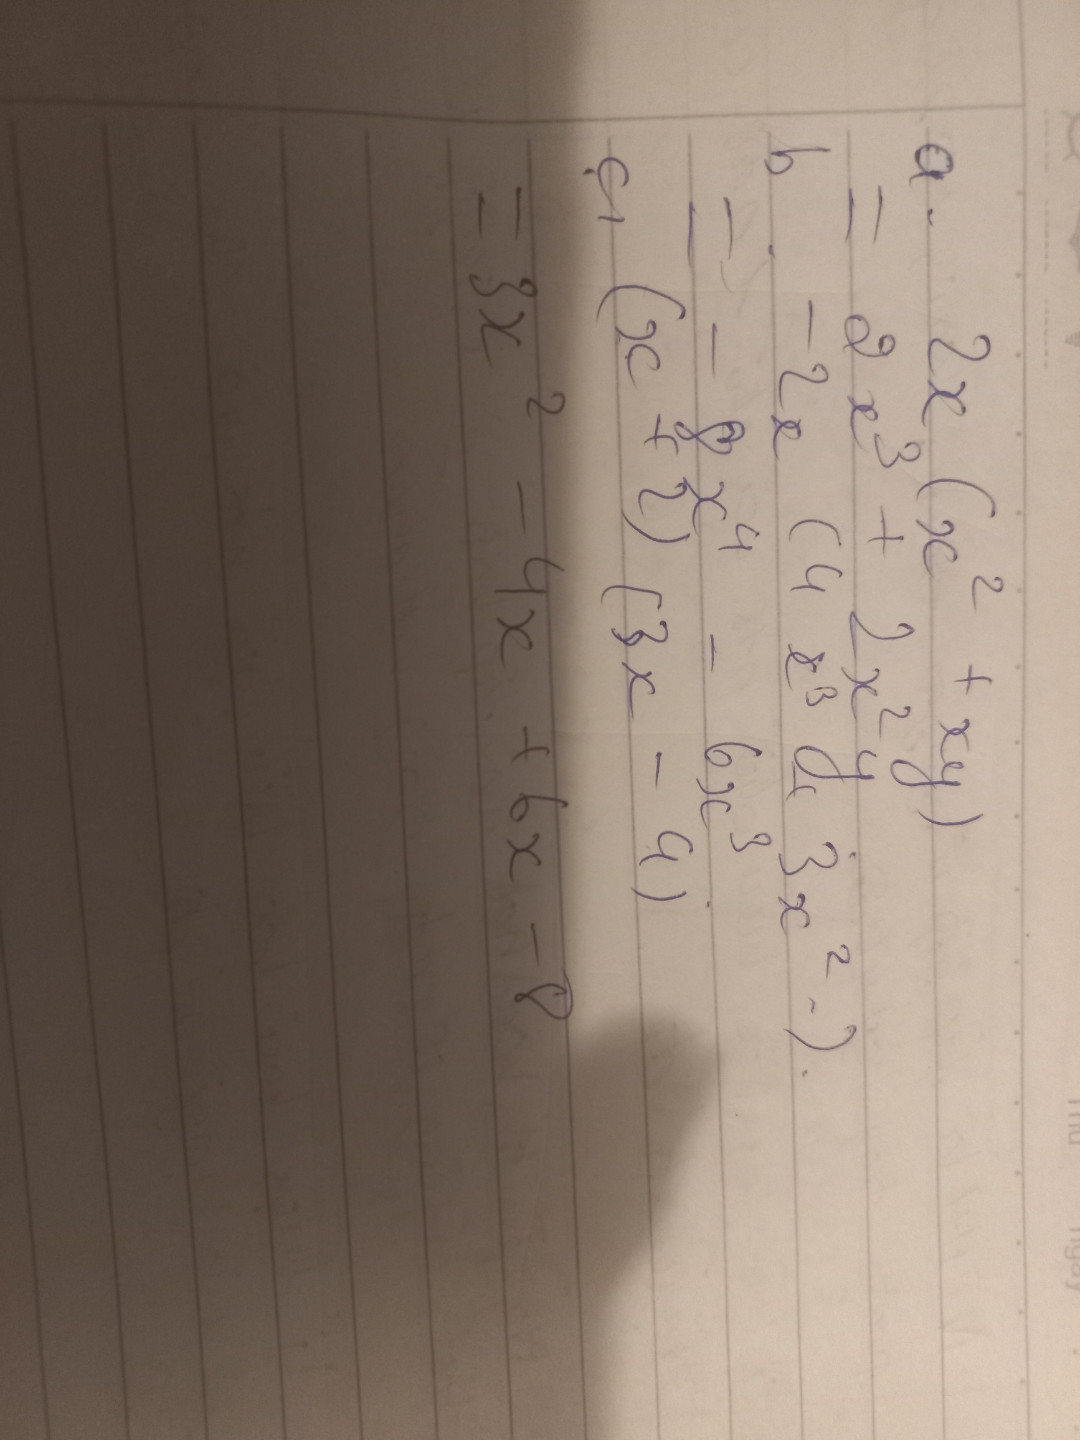 a. 2x (x² + xy)
= 2x³ + 2x²y
b. -2x (4x³ 3x² -).
= - 8x⁴ - 6x³
c, (x + 2) (3x - 4)
= 3x² - 4x + 6x - 8